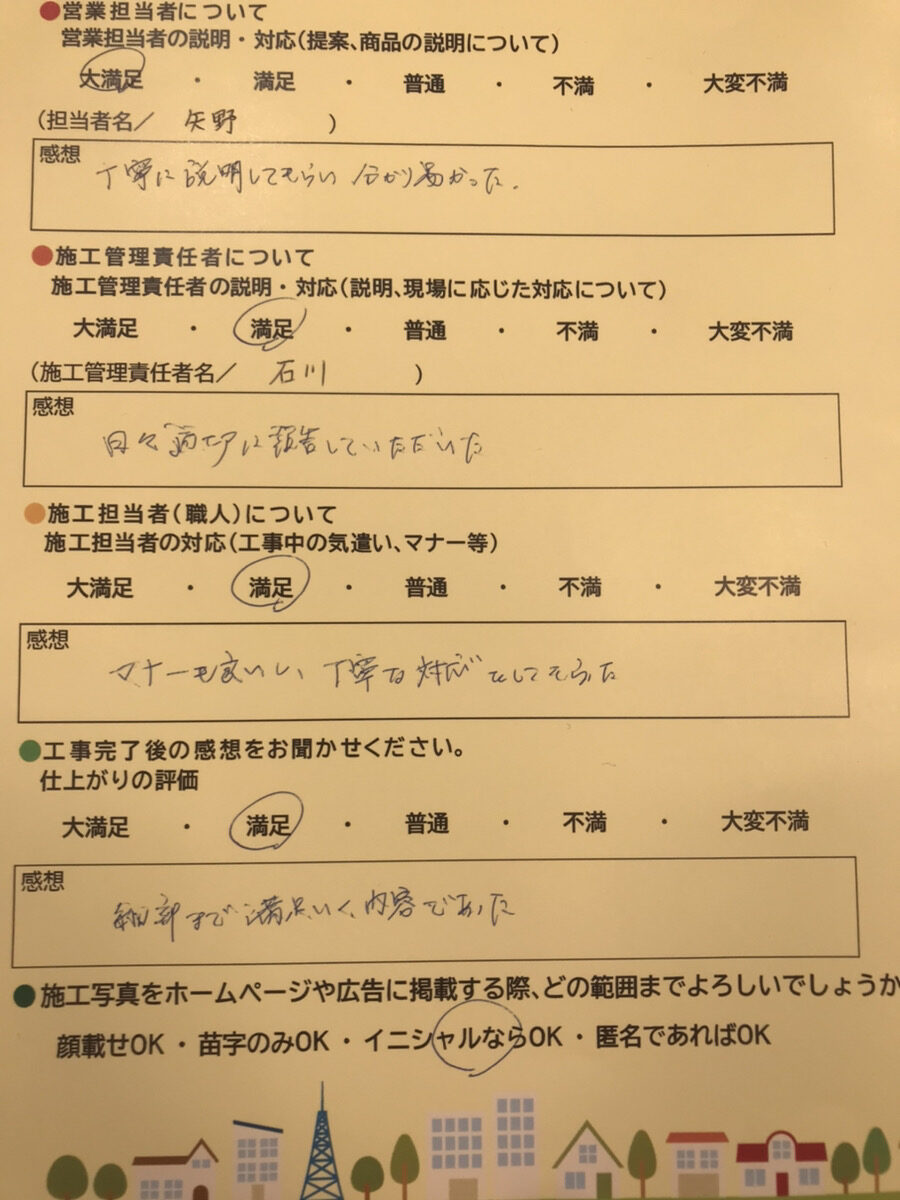 ●営業担当者について
営業担当者の説明・対応(提案、商品の説明について)
大満足 ・ 満足 ・ 普通 ・ 不満 ・ 大変不満
(担当者名/ 矢野 )
感想
丁寧に説明してもらい 分かり易かった.
●施工管理責任者について
施工管理責任者の説明・対応(説明、現場に応じた対応について)
大満足 ・ 満足 ・ 普通 ・ 不満 ・ 大変不満
(施工管理責任者名/ 石川 )
感想
日々適切に報告していただいた
●施工担当者(職人)について
施工担当者の対応(工事中の気遣い、マナー等)
大満足 ・ 満足 ・ 普通 ・ 不満 ・ 大変不満
感想
マナーも良いし、丁寧な対応をしてもらった
●工事完了後の感想をお聞かせください。
仕上がりの評価
大満足 ・ 満足 ・ 普通 ・ 不満 ・ 大変不満
感想
細部まで満足いく内容であった
●施工写真をホームページや広告に掲載する際、どの範囲までよろしいでしょうか
顔載せOK ・ 苗字のみOK ・ イニシャルならOK ・ 匿名であればOK